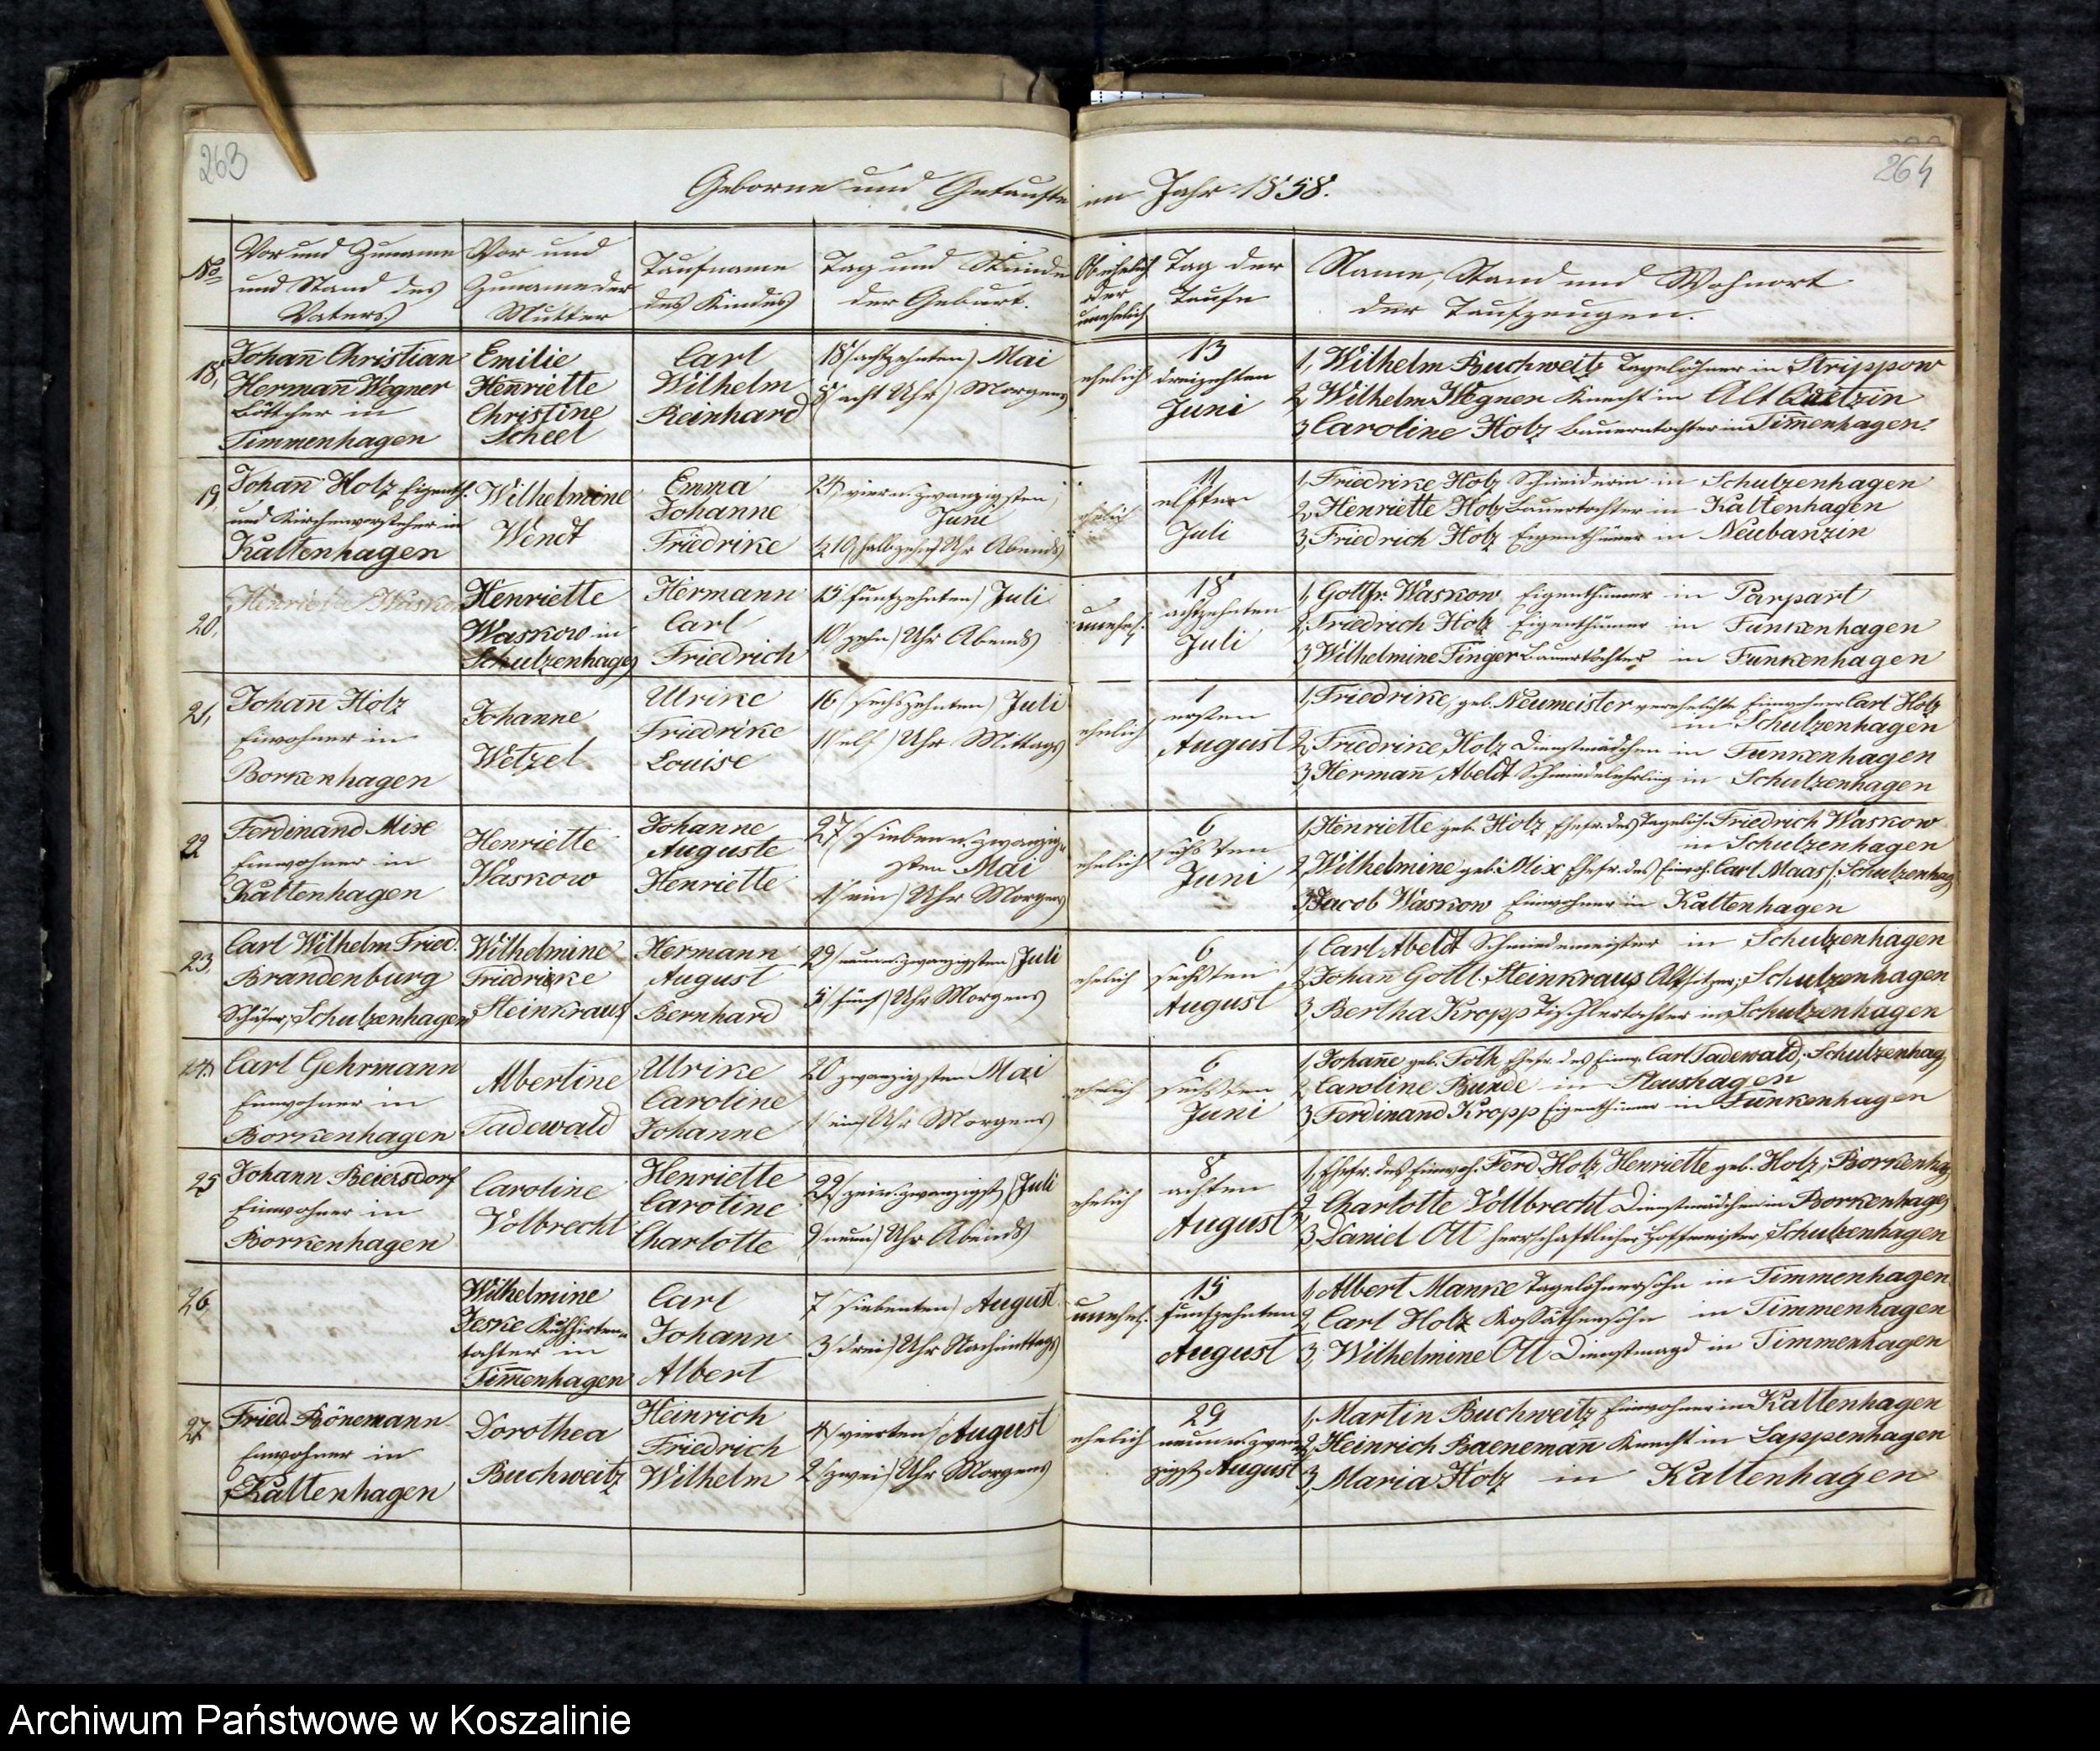 263
264
Geborne und Getaufte im Jahr 1858.
No
Vor und Zuname
und Stand des
Vaters
Vor und
Zuname der
Mutter
Taufname
des Kindes
Tag und Stunde
der Geburt.
Ob ehelich
oder
unehelich
Tag der
Taufe
Name, Stand und Wohnort
der Taufzeugen.
18,
Johañ Christian
Hermañ Wegner
Böttcher in
Timmenhagen
Emilie
Heñriette
Christine
Scheel
Carl
Wilhelm
Reinhard
18 (achtzehnten) Mai
8 (acht Uhr) Morgens
ehelich
13
dreizehten
Juni
1, Wilhelm Buchweitz Tagelöhner in Strippow
2, Wilhelm Wegner Knecht in Alt
3, Caroline Holz Bauerntochter in Tim̃enhagen.
19,
Johañ Holz Eigenth.
und Kirchenvorsteher in
Kaltenhagen
Wilhelmine
Wendt
Emma
Johanne
Friedrike
24, vier u. zwanzigsten,
Juni
½10 (halb zehn) Uhr Abends
ehelich
11
elften
Juli
1, Friedrike Holz Schneiderin in Schulzenhagen
2, Henriette Holz Bauertochter in Kaltenhagen
3, Friedrich Holz Eigenthümer in Neubanzin
20,
Henriette Waskow
Henriette
Waskow in
Schulzenhagen
Hermann
Carl
Friedrich
15 (funfzehnten) Juli
10 (zehn) Uhr Abends
unehel.
18
achtzehnten
Juli
1, Gottfr. Waskow Eigenthümer in Parpart
2, Friedrich Holz Eigenthümer in Funkenhagen
3, Wilhelmine Finger Bauertochter in Funkenhagen
21,
Johañ Holz
Einwohner in
Borkenhagen
Johanne
Wetzel
Ulrike
Friedrike
Louise
16 (sechszehnten) Juli
11 (elf) Uhr Mittags
ehelich
1
ersten
August
1, Friedrike, geb. Neumeister verehelichte Einwohner Carl Holz
in Schulzenhagen
2, Friedrike Holz Dienstmädchen in Funkenhagen
3, Hermañ Abeldt Schmiedelehrling in Schulzenhagen
22
Ferdinand Mix
Einwohner in
Kaltenhagen
Henriette
Waskow
Johanne
Auguste
Henriette
27 (sieben u. zwanzig-
sten Mai
1 (ein) Uhr Morgens
ehelich
6
sechsten
Juni
1, Henriette geb. Holz Ehefr. des Tagelöh. Friedrich Waskow
in Schulzenhagen
2, Wilhelmine geb. Mix Ehefr. des Einwoh. Carl Maas, Schulzenhag
3, Jacob Waskow Einwohner in Kaltenhagen
23,
Carl Wilhelm Fried.
Brandenburg
Schäfer, Schulzenhagen
Wilhelmine
Friedrike
Steinkraus
Hermann
August
Bernhard
29 (neun u. zwanzigsten) Juli
5 (fünf) Uhr Morgens
ehelich
6
sechsten
August
1, Carl Abeldt Schmiedemeister in Schulzenhagen
2, Johan Gottl. Steinkraus Altsitzer, Schulzenhagen
3, Bertha Kropp Tischlertochter in Schulzenhagen
24,
Carl Gehrmann
Einwohner in
Borkenhagen
Albertine
Tadewald
Ulrike
Caroline
Johanne
20 zwanzigsten Mai
1 (ein) Uhr Morgens
ehelich
6
sechsten
Juni
1, Johañe geb. Foth, Ehefr. des Einw. Carl Tadewald, Schulzenhag
2, Caroline Bunde in Plaushagen
3, Ferdinand Kropp Eigenthümer in Funkenhagen
25
Johann Beiersdorf
Einwohner in
Borkenhagen
Caroline
Volbrecht
Henriette
Caroline
Charlotte
22 (zwei u. zwanzigst) Juli
9 (neun) Uhr Abends
ehelich
8
achten
August
1, Ehefr. des Einwoh. Ferd. Holz, Henriette geb. Holz, Borkenhag
2, Charlotte Vollbrecht Dienstmädchen in Borkenhagen
3, Daniel Ott herrschaftlicher Hofmeister Schulzenhagen
26,
Wilhelmine
Jeske Kuhhirten-
tochter in
Tim̃enhagen
Carl
Johann
Albert
7 (siebenten) August
3 (drei) Uhr Nachmittags
unehel.
15
funfzehnten
August
1, Albert Manke Tagelöhnersohn in Timmenhagen
2, Carl Holz Kossäthensohn in Timmenhagen
3, Wilhelmine Ott Dienstmagd in Timmenhagen
27,
Fried. Bönemann
Einwohner in
Kaltenhagen
Dorothea
Buchweitz
Heinrich
Friedrich
Wilhelm
4 (vierten) August
2 (zwei) Uhr Morgens
ehelich
29
neun u. zwan-
zigst August
1, Martin Buchweitz Einwohner in Kaltenhagen
2, Heinrich Baenemañ Knecht in Lappenhagen
3, Maria Holz in Kaltenhagen
Archiwum Państwowe w Koszalinie